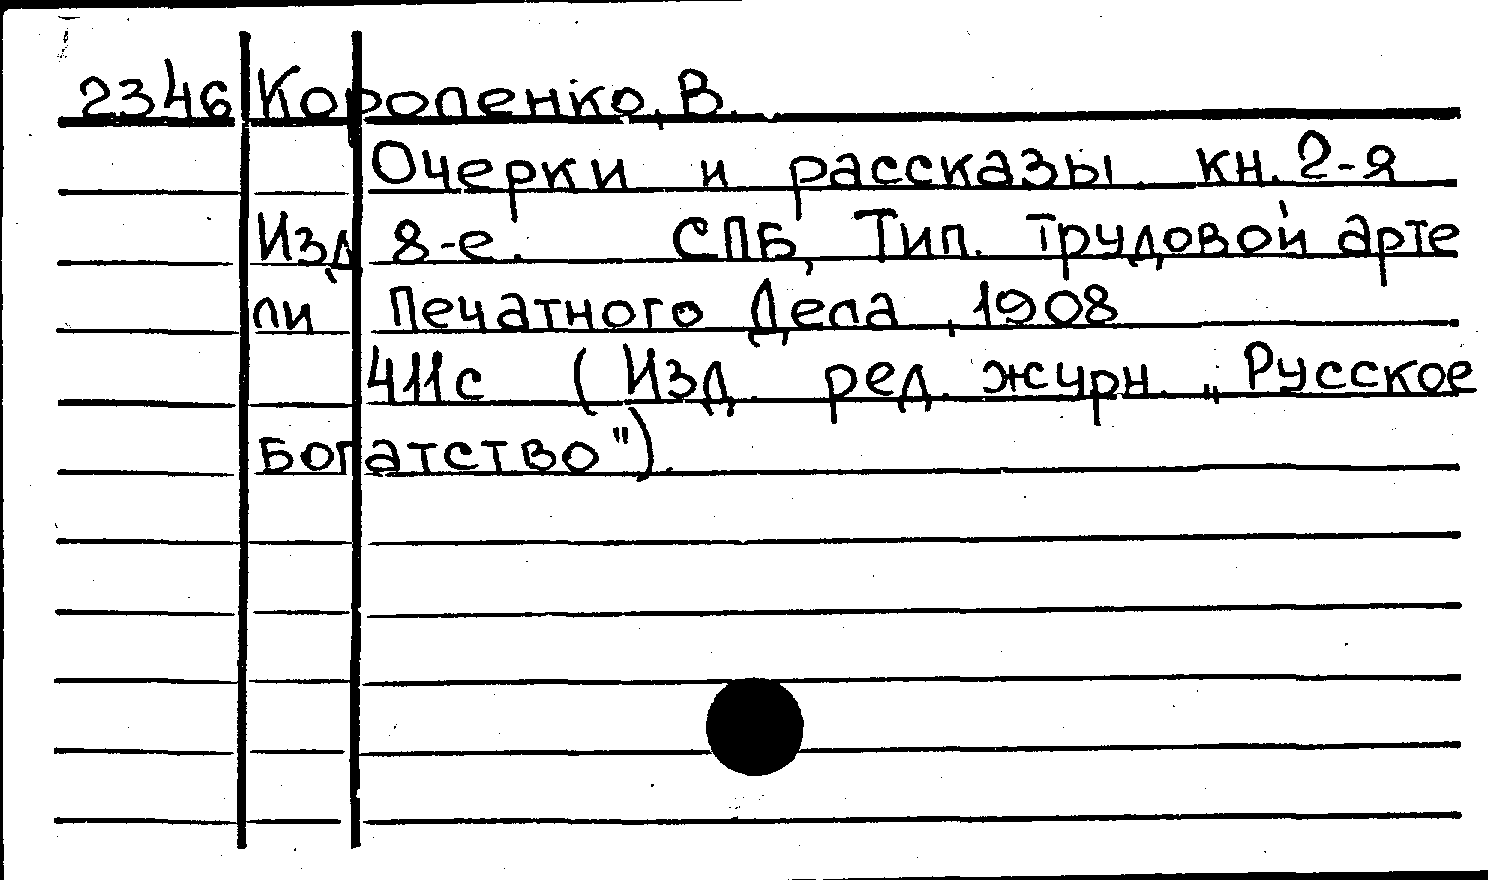 2346 Короленко, В.
Очерки и рассказы кн. 2-я
Изд 8-е. СПБ, Тип. Трудовой арте
ли Печатного Дела, 1908
411с (Изд. ред. журн. „Русское
Богатство").